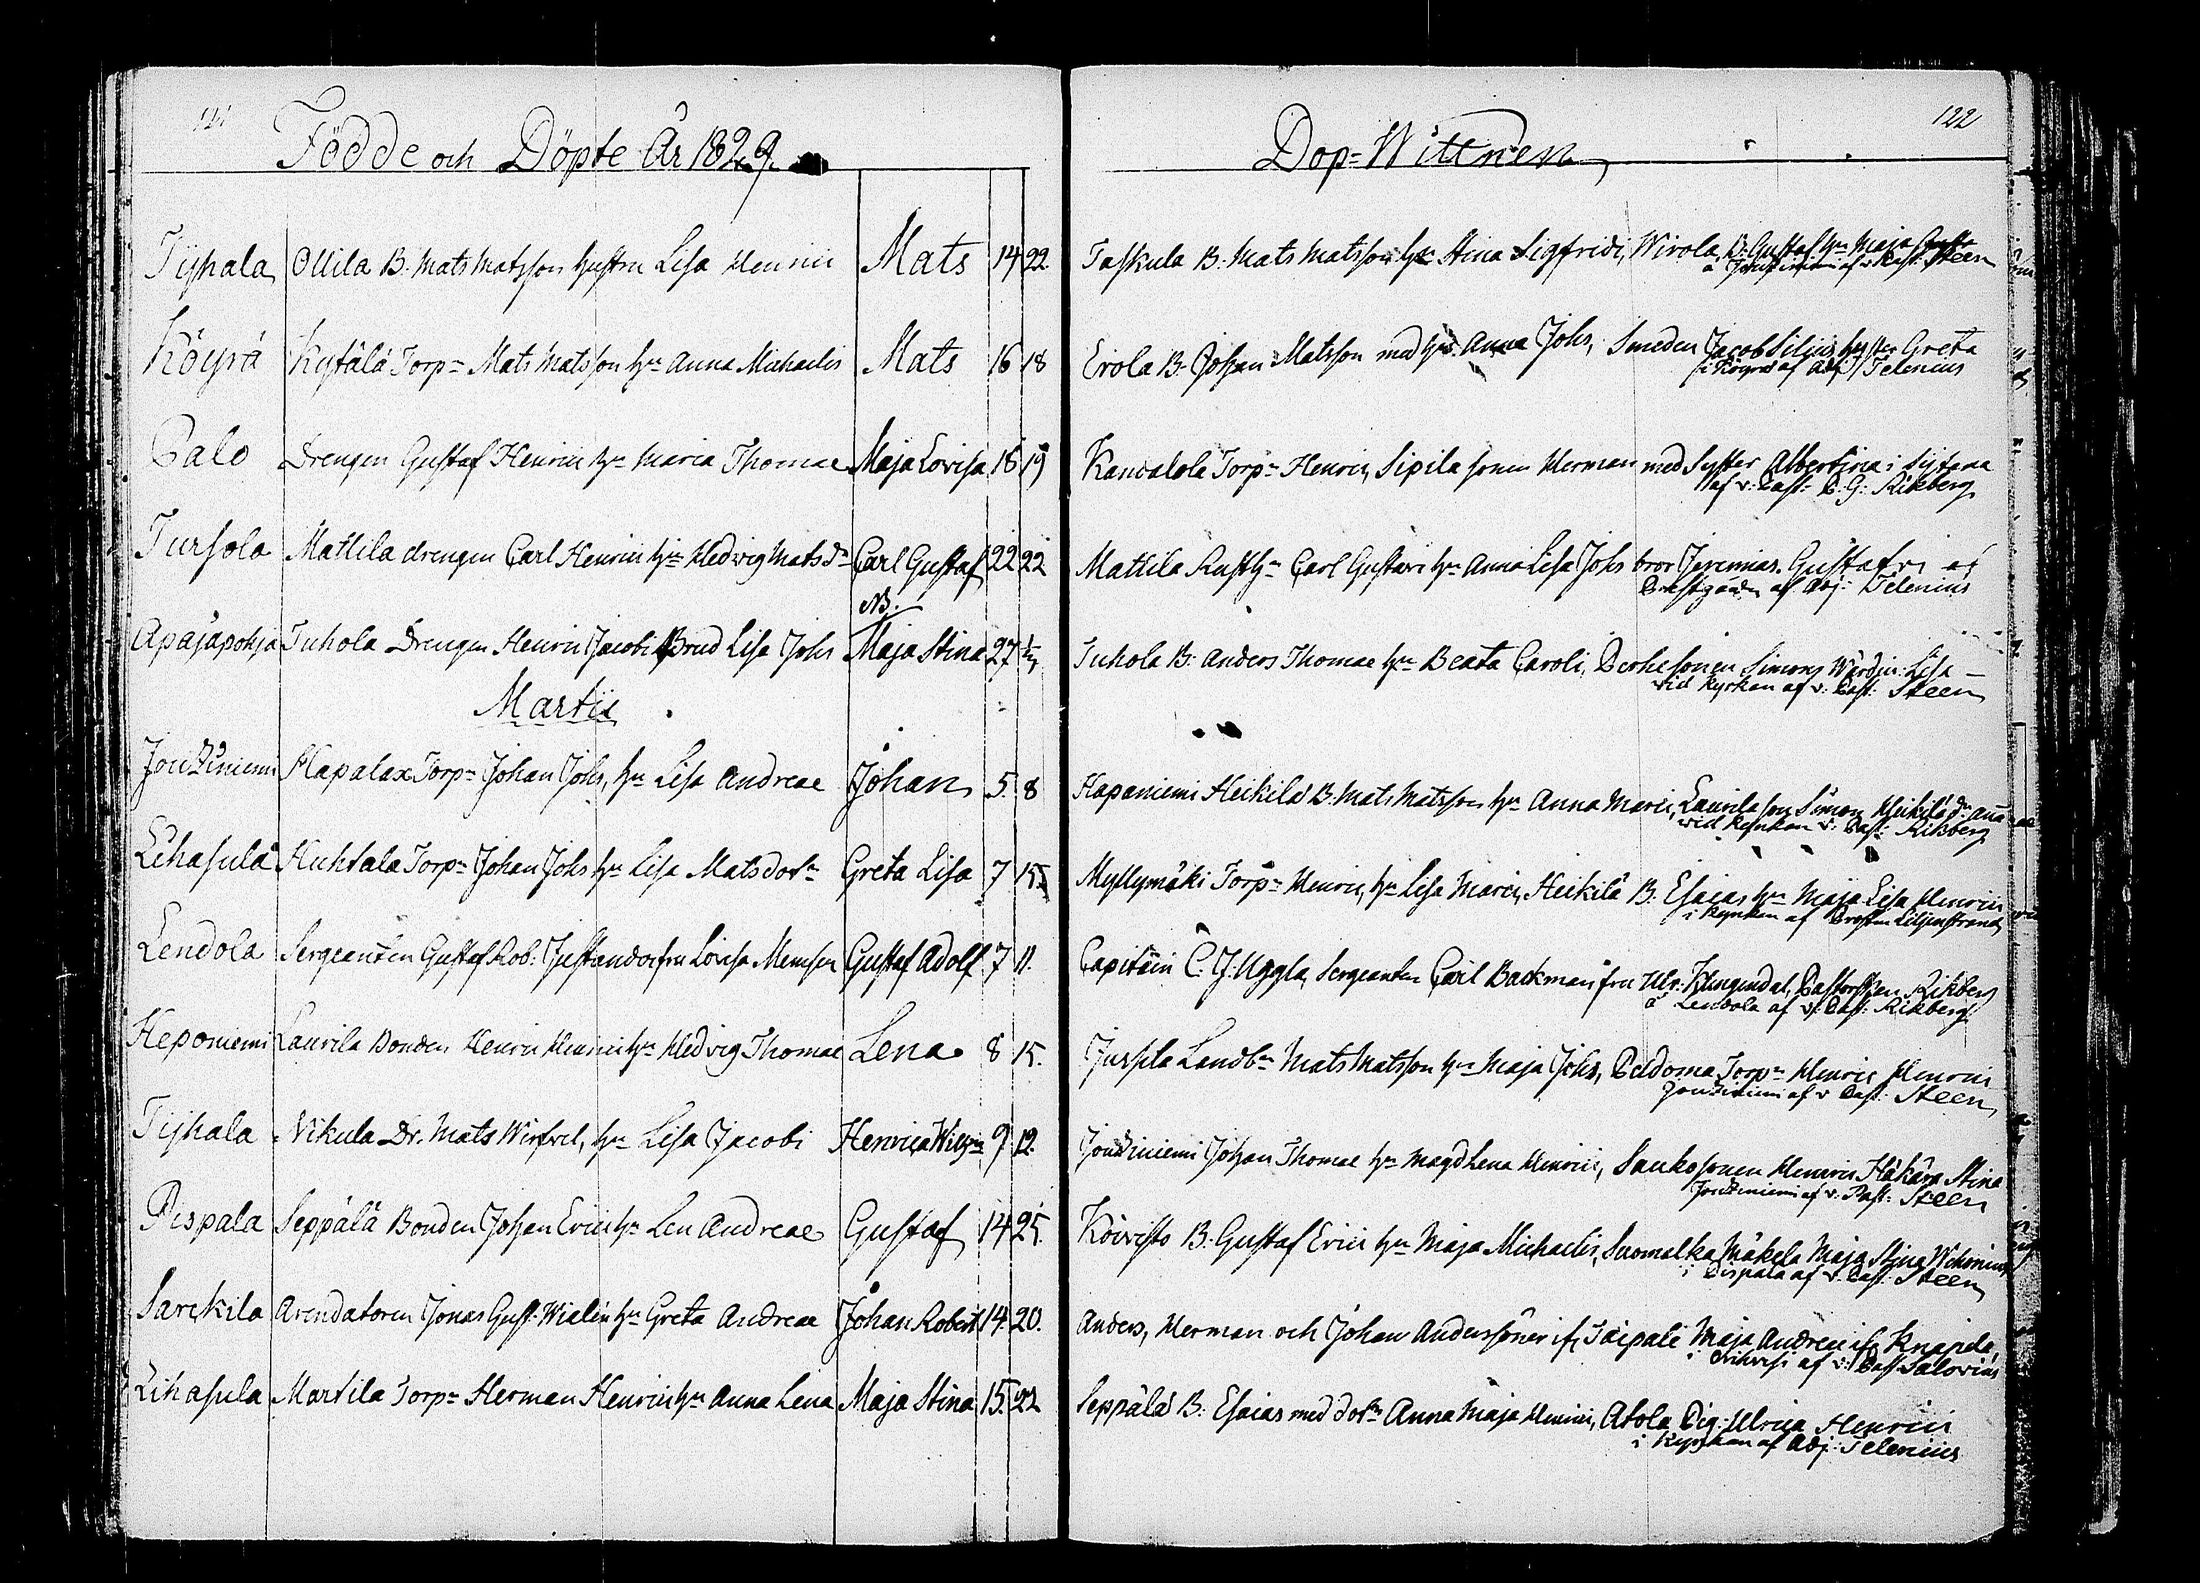 121
Födde och Döpte År 1829.
Tyhala Ollila B. Mats Matsson hustru Lisa Henrici Mats 14 22
Köyrä Kytälä Torp:n Mats Matsson h:u Anna Michaelis Mats 16 18
Palo Drengen Gustaf Henrici h:u Maria Thomae Maja Lovisa 16 19
Tursola Mattila drengen Carl Henrici h:u Hedvig Matsd:r Carl Gustaf 22 22
NB.
Apajapohja Juhola Drengen Henric Jacobi Brud Lisa Johs Maja Stina 27
Martii
Jontziniemi Hapalax Torp:n Johan Johs, h:u Lisa Andreae Johan 5. 8
Lihasula Huhtala Torp:n Johan Johs h:u Lisa Matsdot:r Greta Lisa 7 15
Lendola Sergeanten Gustaf Rob: Lovisa Gustaf Adolf 7 11.
Heponiemi Laurila Bonden Henric Henrici h:u Hedvig Thomae Lena 8 15.
Tyhala Nikula Dr. Mats h:u Lisa Jacobi Henrica 9 12.
Pispala Seppälä Bonden Johan Erici h:u Len Andreae Gustaf 14 25
Sarckila Arendatoren Jonas Gust: Wialen h:u Greta Andreae Johan Robert 14. 20.
Lihasula Martila Torp:n Herman Henrici h:u Anna Lena Maja Stina 15. 22
122
Dop-Wittnen
Taskula B. Mats Matsson h:u Stina Sigfridi, Wirola B: Gustaf h:u Maja
å Jontziniemi af v. Past: Steen
Erola B. Johan Matsson med h:u Anna Johs, Smeden Jacob Silius Greta
i Köyrä af Adj: Telenius
Kandalola Torp:n Henric, Sipila sonen Herman med Syster Albertina i
af v: Past: C. G: Rikberg
Mattila Rusth:n Carl Gustavi h:u Anna Lisa Johs bror Jeremias Gustafvi
Prestgården af Adj: Telenius
Juhola B: Anders Thomae h:u Beata Caroli, Simons Lisa
vid kyrkan af v: Past: Steen
Hapaniemi Heikilä B. Mats Matsson h:u Anna Marci, Laurila son Simon Heikilä
vid kyrkan v: Past: Rikberg
Myllymäki Torp:n Henric, h:u Lisa Marci, Heikilä B. Esaias h:u Maja Lisa Henrici
i kyrkan af Prosten Liljenstrand
Capitain C. J. Uggla, Sergeanten Carl Backman, fru Ulr: Klingendal, Rikberg
å Lendola af v: Past: Rikberg
Landb:n Mats Matsson h:u Maja Johs, Torp:n Henric Henrici
Jontziniemi af v Past: Steen
Jontziniemi Johan Thomae h:u Magd Lena Henrici, Saukosonen Henric Stina
Jontziniemi af v. Past: Steen
Koivisto B. Gustaf Erici h:u Maja Michaelis, Suomalka Mäkela Maja Stina
i Pispala af v. Past: Steen
Anders, Herman och Johan Anderssöner ifr Taipale Maja Andreae ifr Knapila,
af v: Past Salovius
Seppälä B: Esaias med dot:r Anna Maja Henrici, Atola Pig. Ulrica Henrici
i Kyrkan af Adj: Telenius